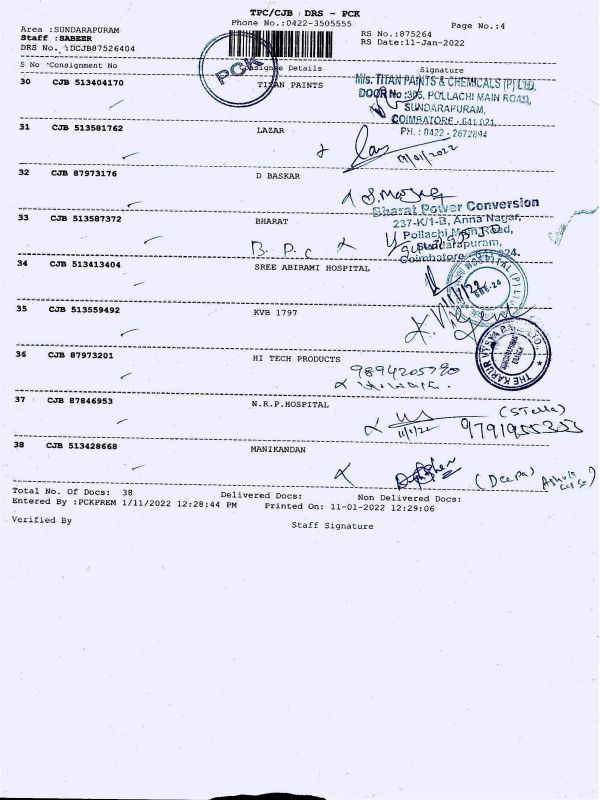 TPC/CJB DRS - PCK
Phone No.:0422-3505555
Page No.:4
Area :SUNDARAPURAM
Staff :SABEER
DRS No. :DCJB87526404
RS No.:875264
RS Date:11-Jan-2022
PCK
S No Consignment No Consignee Details Signature
30 CJB 513404170 TITAN PAINTS
M/s. TITAN PAINTS & CHEMICALS (P) LTD,
DOOR No :305, POLLACHI MAIN ROAD,
SUNDARAPURAM,
COIMBATORE - 641 021.
PH. : 0422 - 2672894
31 CJB 513581762 LAZAR
11/01/2022
32 CJB 87973176 D BASKAR
33 CJB 513587372 BHARAT
B. P. C
Bharat Power Conversion
237-K/1-B, Anna Nagar,
Pollachi Main Road,
Sundarapuram,
Coimbatore - 641 024.
34 CJB 513413404 SREE ABIRAMI HOSPITAL
35 CJB 513559492 KVB 1797
THE KARUR VYSYA BANK LTD.
36 CJB 87973201 HI TECH PRODUCTS
9894205790
37 CJB 87846953 N.R.P.HOSPITAL
(Stella)
11/1/22
38 CJB 513428668 MANIKANDAN
(Deepa)
Total No. Of Docs: 38 Delivered Docs: Non Delivered Docs:
Entered By :PCKPREM 1/11/2022 12:28:44 PM Printed On: 11-01-2022 12:29:06
Verified By Staff Signature